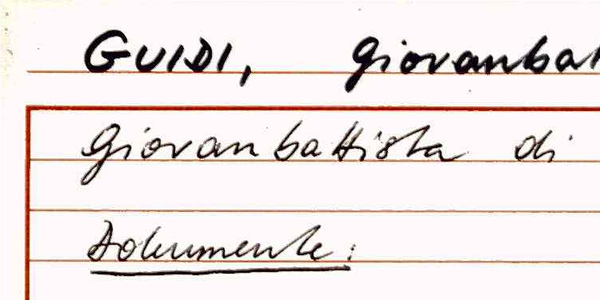 GUIDI, Giovanbat
Giovanbattista di
Dokumente: